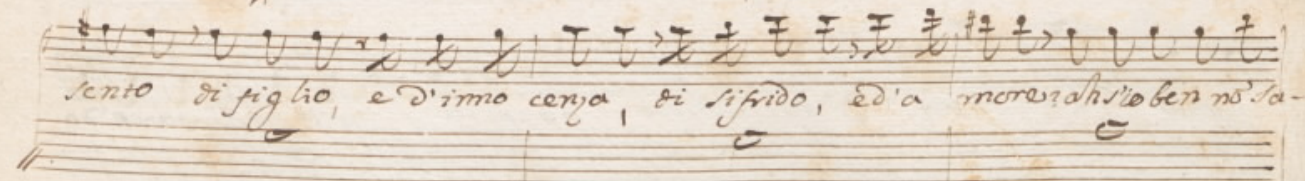 sento di figlio, e d'inno cenza, di sifrido, ed'a more? ah s'io ben nō sa-